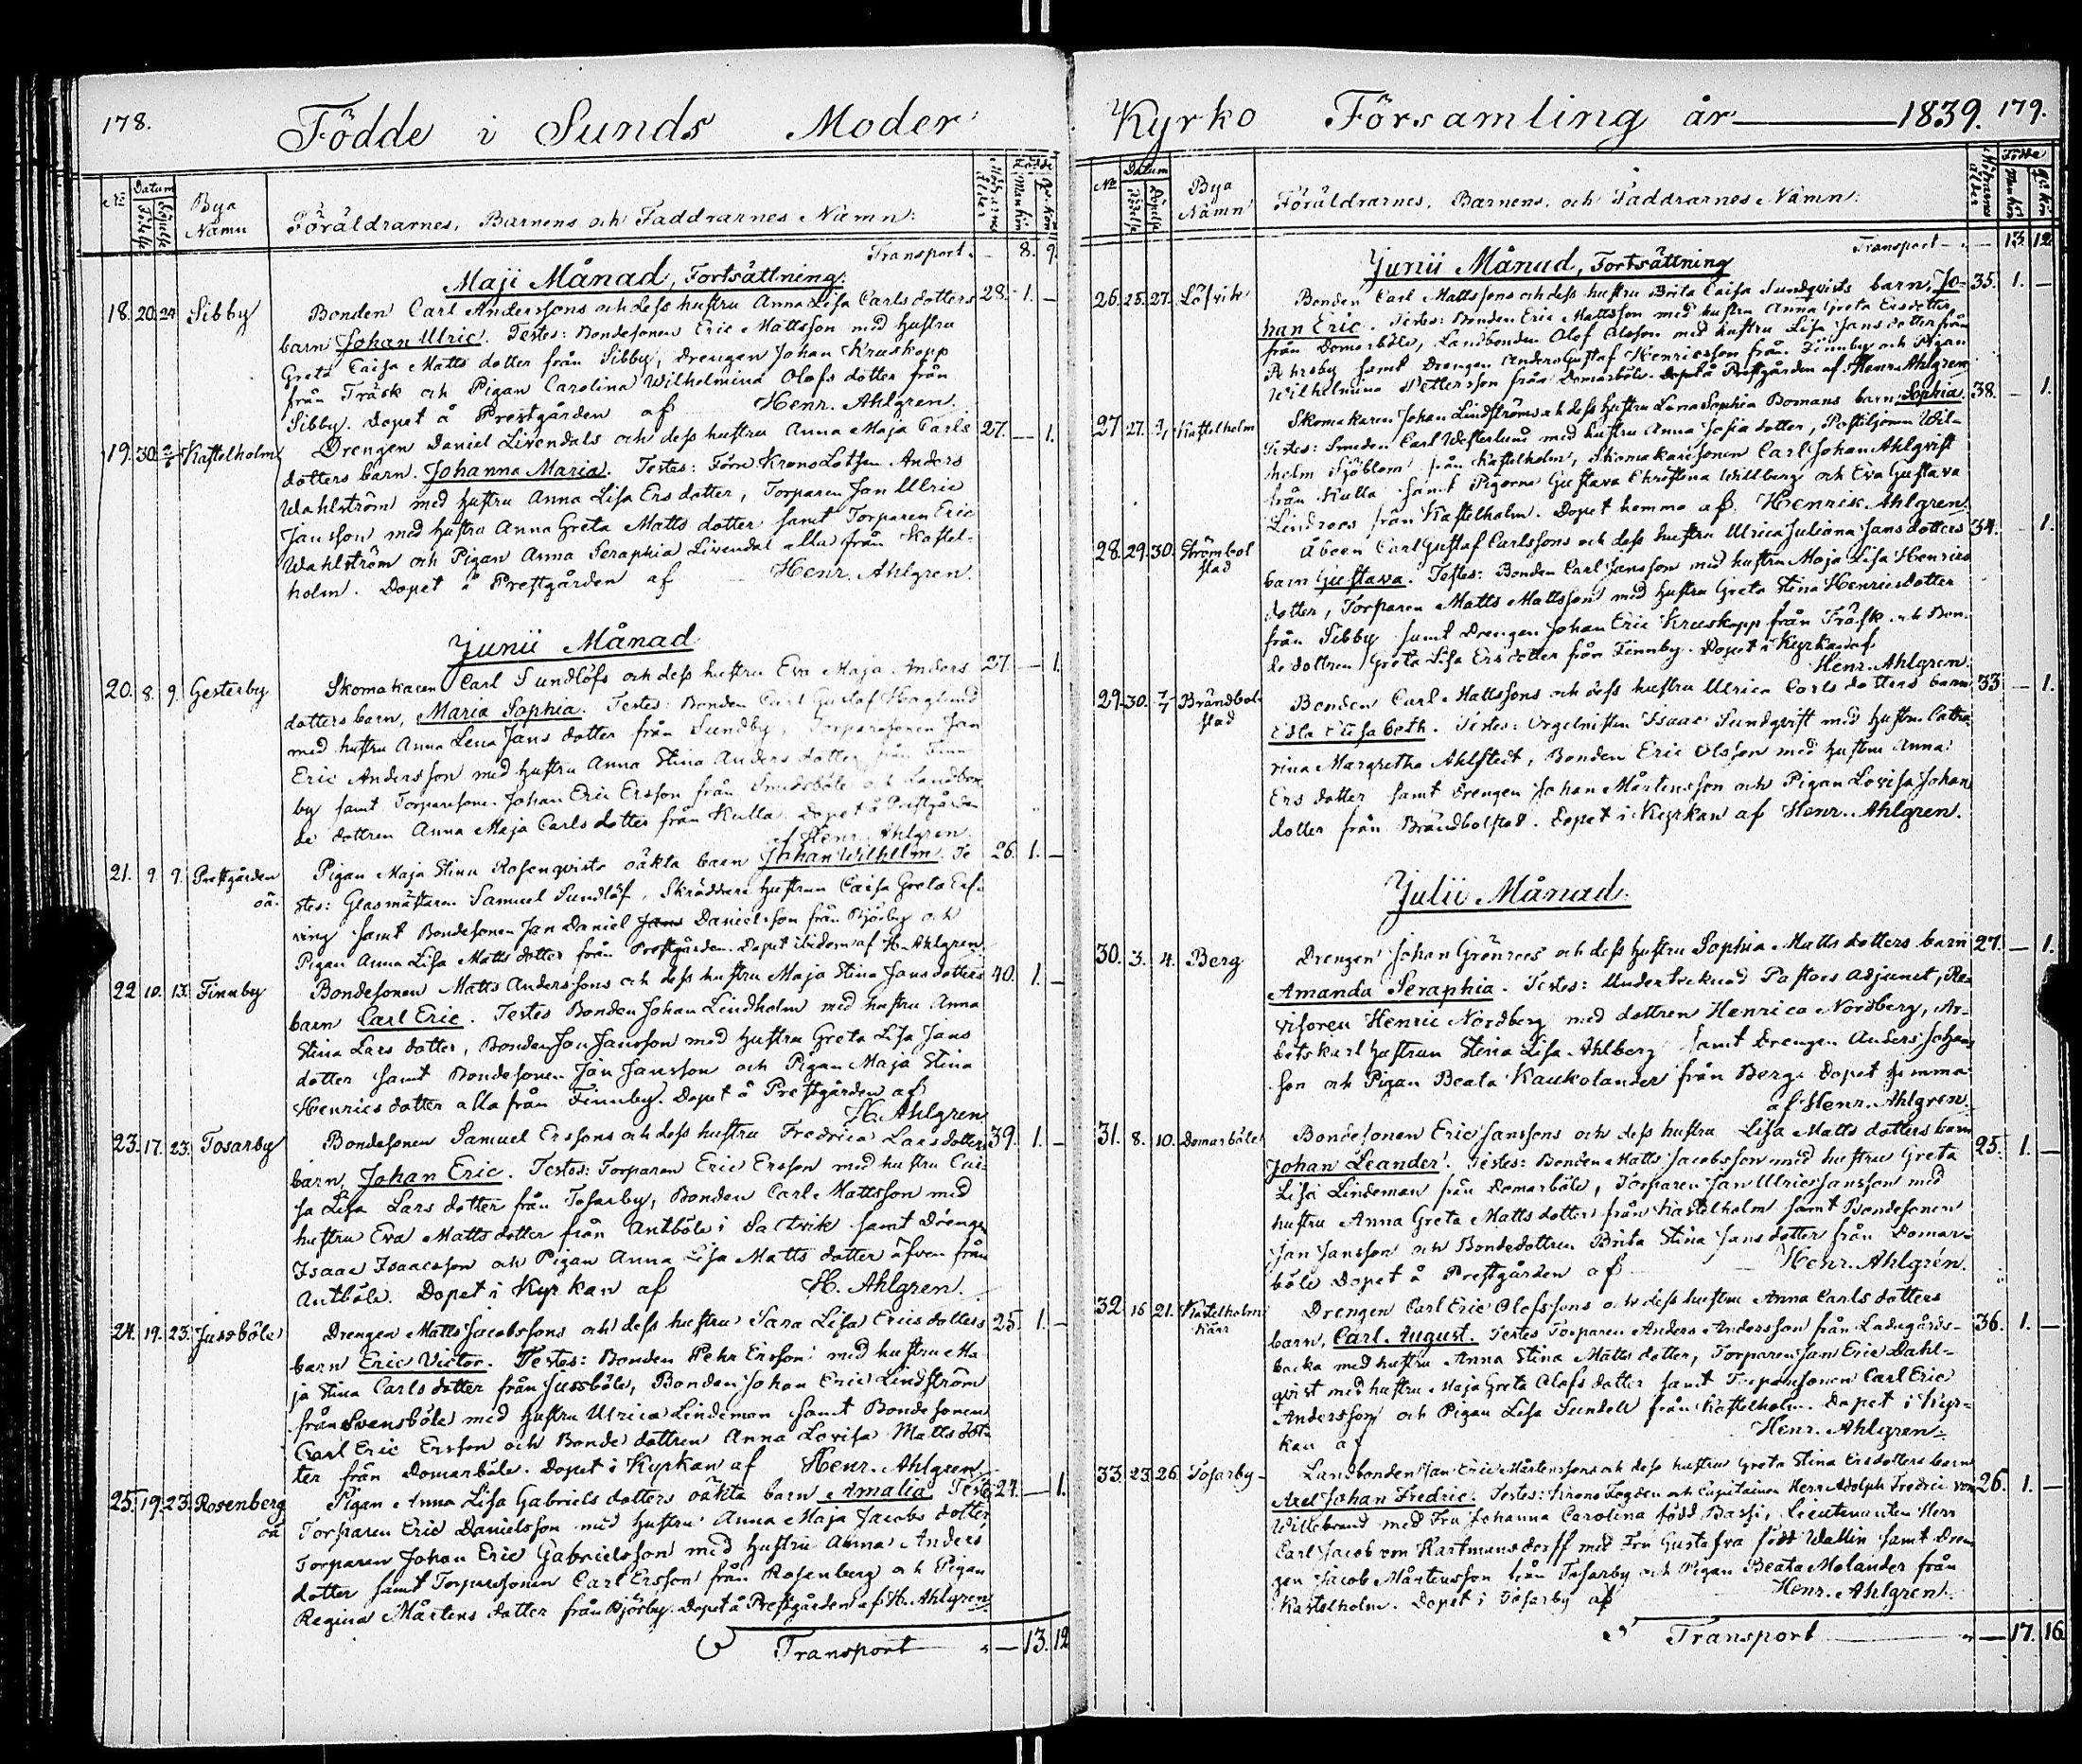 178.
Födde i Sunds Moder
No Datum Födelse Döpelse Bya Namn Föräldrarnes, Barnens och Faddrarnes Namn: Modrens ålder Födde Mankön Qvinkön
Transport. — 8. 9.
Maji Månad, Fortsättning.
18. 20. 24. Sibby Bonden Carl Anderssons och dess hustru Anna Lisa Carls dotters 28. 1. —
barn Johan Ulric. Testes: Bondesonen Eric Mattsson med hustru
Greta Caisa Matts dotter från Sibby, Drengen Johan Kruskopp
från Träsk och Pigan Carolina Wilhelmina Olofs dotter från
Sibby. Dopet å Prestgården af Henr. Ahlgren.
19. 30. 2/6 Kastelholm Drengen Daniel Livendals och dess hustru Anna Maja Carls 27. — 1.
dotters barn. Johanna Maria. Testes: Förre Krono Lotsen Anders
Wahlström med hustru Anna Lisa Ers dotter, Torparen Jan Ulric
Jansson med hustru Anna Greta Matts dotter samt Torparen Eric
Wahlström och Pigan Anna Seraphia Livendal alla från Kastel-
holm. Dopet å Prestgården af Henr. Ahlgren.
Junii Månad
20. 8. 9. Gesterby Skomakaren Carl Sundlöfs och dess hustru Eva Maja Anders 27. — 1.
dotters barn, Maria Sophia. Testes: Bonden Carl Gustaf Hoglund
med hustru Anna Lena Jans dotter från Sundby, Torparesonen Jan
Eric Andersson med hustru Anna Stina Anders dotter från Finn
by samt Torparesonen Johan Eric Ersson från Smedsböle och Landbon
de dottren Anna Maja Carls dotter från Kulla. Dopet å Prestgården
af Henr. Ahlgren.
21. 9. 9. Prestgården oä. Pigan Maja Stina Rosenqvists oäkta barn Johan Wilhelm. Te 26. 1. —
stes: Glasmästaren Samuel Sundlöf, Skräddare hustrun Caisa Greta
ring samt Bondesonen Jan Daniel Jans Danielsson från Björby och
Pigan Anna Lisa Matts dotter från Prestgården. Dopet ibidem af H. Ahlgren
22. 10. 13. Finnby Bondesonen Matts Anderssons och dess hustru Maja Stina Jans dotters 40. 1. —
barn Carl Eric. Testes Bonden Johan Lindholm med hustru Anna
Stina Lars dotter, Bonden Jan Jansson med hustru Greta Lisa Jans
dotter samt Bondesonen Jan Jansson och Pigan Maja Stina
Henrics dotter alla från Finnby. Dopet å Prestgården af
H. Ahlgren
23. 17. 23. Tosarby Bondesonen Samuel Erssons och dess hustru Fredrica Lars dotters 39. 1. —
barn, Johan Eric. Testes: Torparen Eric Ersson med hustru Cai-
sa Lisa Lars dotter från Tosarby, Bonden Carl Mattsson med
hustru Eva Matts dotter från Antböle i Saltvik samt Drengen
Isaac Isaacsson och Pigan Anna Lisa Matts dotter äfven från
Antböle. Dopet i Kyrkan af H. Ahlgren.
24. 19. 23. Jussböle Drengen Matts Jacobssons och dess hustru Sara Lisa Erics dotters 25. 1. —
barn Eric Victor. Testes: Bonden Pehr Ersson med hustru Ma-
ja Stina Carls dotter från Jussböle, Bonden Johan Eric Lindström
från Svensböle med hustru Ulrica Lindeman samt Bondesonen
Carl Eric Ersson och Bonde dottren Anna Lovisa Matts dot-
ter från Domarböle. Dopet i Kyrkan af Henr. Ahlgren
25. 19. 23. Rosenberg oä Pigan Anna Lisa Gabriels dotters oäkta barn Amalia. Testes 24. — 1.
Torparen Eric Danielsson med hustru Anna Maja Jacobs dotter
Torparen Johan Eric Gabrielsson med hustru Anna Anders
dotter samt Torparesonen Carl Ersson från Rosenberg och Pigan
Regina Mårtens dotter från Björby. Dopet å Prestgården af Hr. Ahlgren
Transport — 13. 12
Kyrko Församling år 1839. 179.
No Datum Födelse Döpelse Bya Namn Föräldrarnes, Barnens, och Faddrarnes Namn: Modrens ålder Födde Mankön Qvinkön
Transport — 13. 12
Junii Månad, Fortsättning
26. 25. 27. Löfvik Bonden Carl Mattssons och dess hustru Brita Caisa Sundqvists barn, Jo- 35. 1. —
han Eric. Testes: Bonden Eric Mattsson med hustru Anna Greta Ersdotter
från Domarböle, Landbonden Olof Olsson med hustru Lisa Jans dotter från
Pehrsby samt Drengen Anders Gustaf Henricsson från Finnby och Pigan
Wilhelmina Pettersson från Domarböle. Dopet å Prestgården af Henr. Ahlgren
27 27. 7/7 Kastelholm Skomakaren Johan Lindströms och dess hustru Lena Sophia Bomans barn Sophia. 38. — 1.
Testes: Smeden Carl Westerlund med hustru Anna Sofia dotter, Postiljonen Wil-
helm Sjöblom från Kastelholm, Skomakaresonen Carl Johan Ahlqvist
från Kulla samt Pigorna Gustava Christina Willberg och Eva Gustava
Lindroos från Kastelholm. Dopet hemma af Henric Ahlgren.
28. 29. 30. Strömbol stad Åboen Carl Gustaf Carlssons och dess hustru Ulrica Juliana Jans dotters 34. — 1.
barn Gustava. Testes: Bonden Carl Jansson med hustru Maja Lisa Henrics
dotter, Torparen Matts Mattsson med hustru Greta Stina Henricsdotter
från Sibby samt Drengen Johan Eric Kruskopp från Träsk och Bon-
de dottren Greta Lisa Ers dotter från Finnby. Dopet i Kyrkan af
Henr. Ahlgren.
29. 30. 7/7 Brändbol stad Bonden Carl Mattssons och dess hustru Ulrica Carls dotters barn 33 — 1.
Edla Elisabeth. Testes: Orgelnisten Isaac Sundqvist med hustru Catha
rina Margretha Ahlstedt, Bonden Eric Olsson med hustru Anna
Ers dotter samt Drengen Johan Mårtensson och Pigan Lovisa Johans
dotter från Brändbolstad. Dopet i Kyrkan af Henr. Ahlgren.
Julii Månad.
30. 3. 4. Berg Drengen Johan Grönroos och dess hustru Sophia Matts dotters barn 27. — 1.
Amanda Seraphia. Testes: Undertecknad Pastors adjunct, Re
visoren Henric Nordberg med dottren Henrica Nordberg, Ar-
betskarl hustrun Stina Lisa Ahlberg samt Drengen Anders Johans
son och Pigan Beata Kaukolander från Berg. Dopet hemma
af Henr. Ahlgren.
31. 8. 10. Domarböle Bondesonen Eric Janssons och dess hustru Lisa Matts dotters barn 25. 1. —
Johan Leander. Testes: Bonden Matts Jacobsson med hustru Greta
Lisa Lindeman från Domarböle, Torparen Jan Ulric Jansson med
hustru Anna Greta Matts dotter från Kastelholm samt Bondesonen
Jan Jansson och Bondedottren Brita Stina Jans dotter från Domar-
böle Dopet å Prestgården af Henr. Ahlgrén.
32. 15 21. Kastelholm Kärr Drengen Carl Eric Olofssons och dess hustru Anna Carls dotters 36. 1. —
barn, Carl August. Testes Torparen Anders Andersson från Ladugårds-
backa med hustru Anna Stina Matts dotter, Torparen Jan Eric Dahl-
qvist med hustru Maja Greta Olofs dotter samt Torparesonen Carl Eric
Andersson och Pigan Lisa Sundell från Kastelholm. Dopet i Kyr-
kan af Henr. Ahlgren.
33. 23. 26. Tosarby Landbonden Jan Eric Mårtenssons och dess hustru Greta Stina Ersdotters barn 26. 1. —
Axel Johan Fredric. Testes: Krono Fogden och Capitainen Herr Adolph Fredric von
Willebrand med Fru Johanna Carolina född Bassi, Lieutenanten Herr
Carl Jacob von Hartmansdorff med Fru Gustafva född Wallin samt Dren
gen Jacob Mårtensson från Tosarby och Pigan Beata Molander från
Kastelholm. Dopet i Tosarby af Henr. Ahlgren.
Transport — 17. 16.